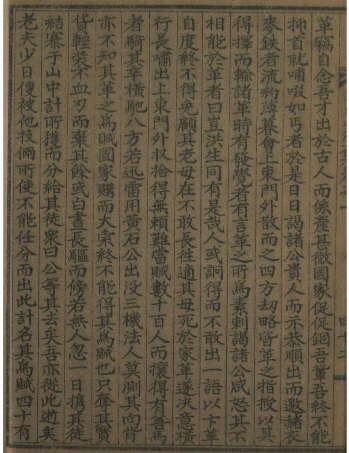 革竊自念吾才出於古人而係產甚微國家促侷吾輩吾終不能
抑首就哺啜如丐者於是日日謁諸公貴人而示恭順出而邀赭衣
麥鉄者流約薄暮會上東門外散而之四方刼略皆革之指授以其
得擇而輸諸革時有發覺者有言革之所爲素刺謁諸公咸怒其不
相能於革者曰豈洪生同有是哉人或詗得而不敢出一語以卞革
自度終不得免顧其老母在不敢長往適其母死於家革遂大意橫
行長嘯出上東門外收拾得無賴難當賊數十百人而攘得有善馬
者騎其卒橫馳八方若迅雷用黃石公出沒三機法人莫測其向背
亦不知其革之爲賊國家購而大索終不能得其爲賊也只奪其實
貨輕裝不血刃而棄其餘或白晝長驅而倏若無人忽一日携其徒
結寨于山中計所獲而分給其徒衆曰公等其去矣吾亦從此逝矣
老夫少日被他技倆所使不能任分而出此計名其爲賊四十有